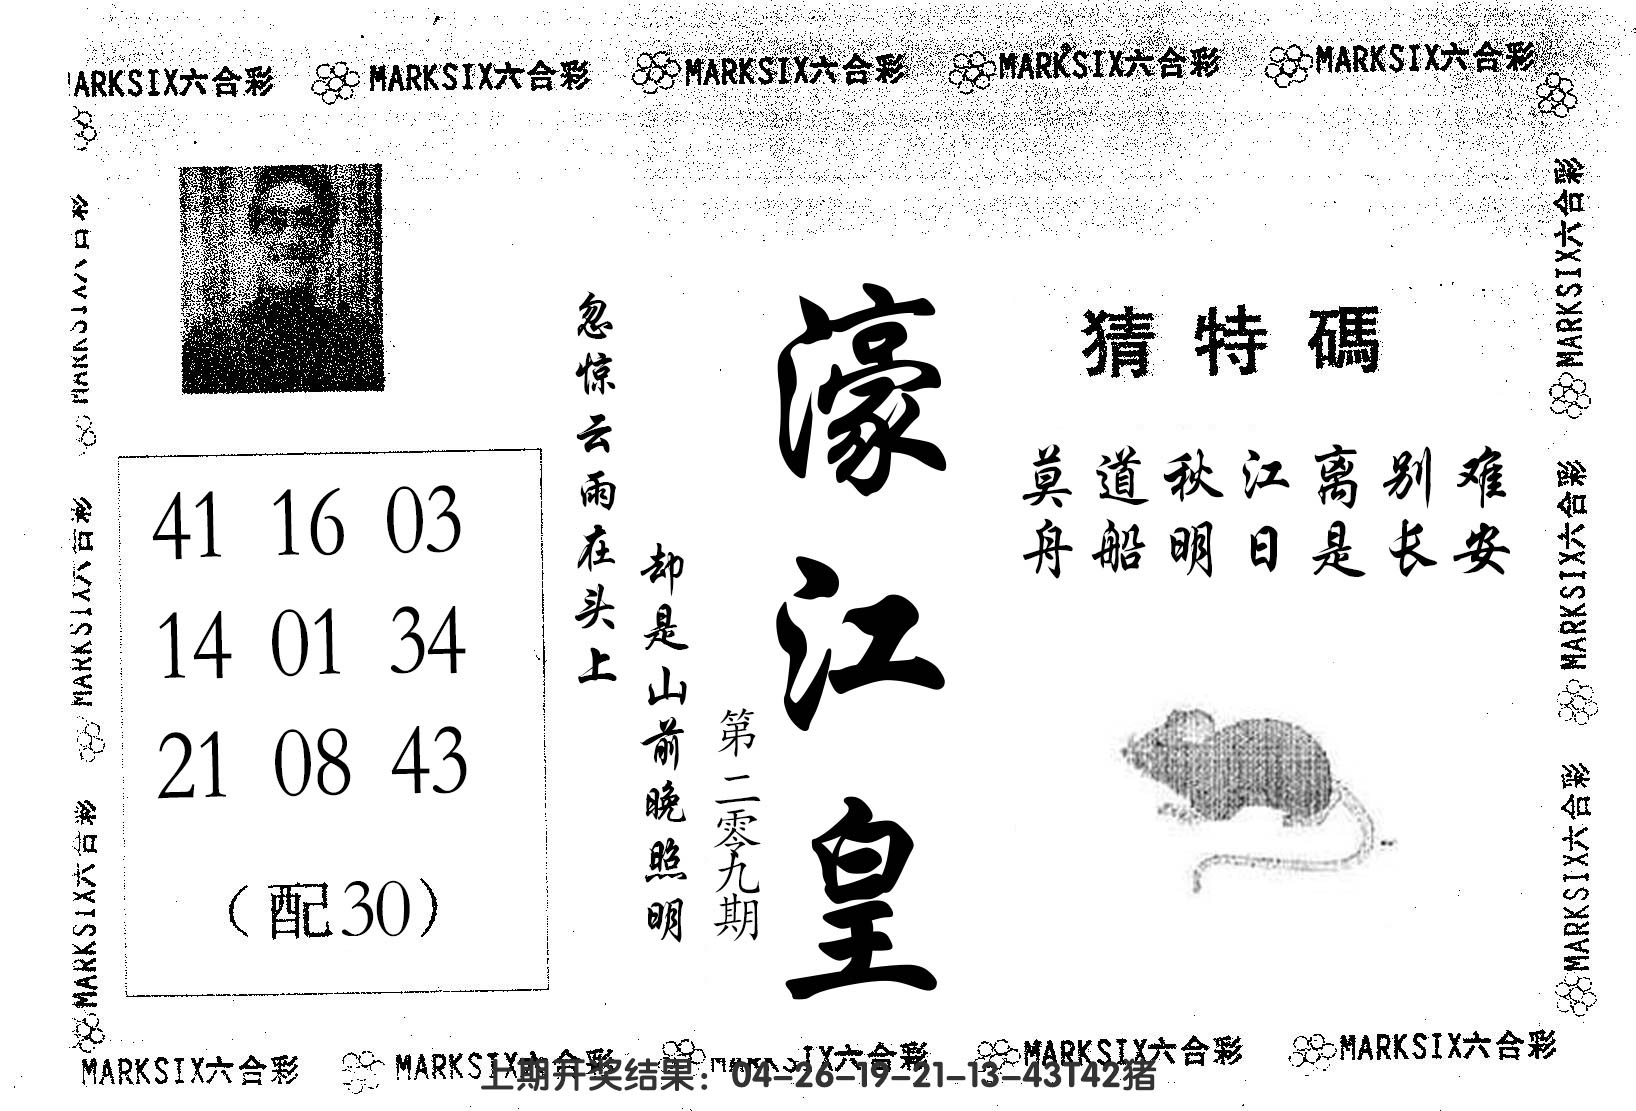 MARKSIX六合彩 MARKSIX六合彩 MARKSIX六合彩 MARKSIX六合彩 MARKSIX六合彩
猜特碼
莫道秋江离别难
舟船明日是长安
濠江皇
第二零九期
忽惊云雨在头上
却是山前晚照明
41 16 03
14 01 34
21 08 43
（配30）
MARKSIX六合彩
MARKSIX六合彩
MARKSIX六合彩
MARKSIX六合彩
MARKSIX六合彩
MARKSIX六合彩
MARKSIX六合彩 MARKSIX六合彩 MARKSIX六合彩 MARKSIX六合彩 MARKSIX六合彩
上期开奖结果：04-26-19-21-13-43T42猪